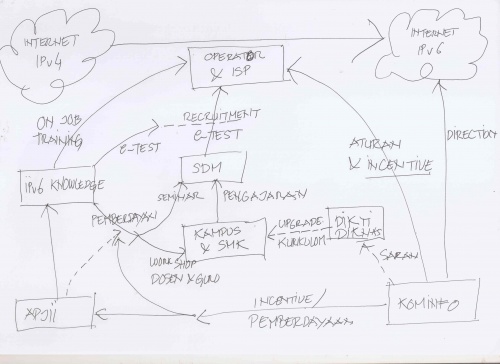 INTERNET
IPv4
OPERATOR
& ISP
INTERNET
IPv6
ON JOB
TRAINING
RECRUITMENT
E-TEST
E-TEST
ATURAN
& INCENTIVE
DIRECTION
IPv6 KNOWLEDGE
SDM
SEMINAR
PENGAJARAN
PEMBERDAYAAN
KAMPUS
& SMK
UPGRADE
KURIKULUM
DIKTI
DIKNAS
WORKSHOP
DOSEN & GURU
SARAN
APJII
INCENTIVE/
PEMBERDAYAAN
KOMINFO